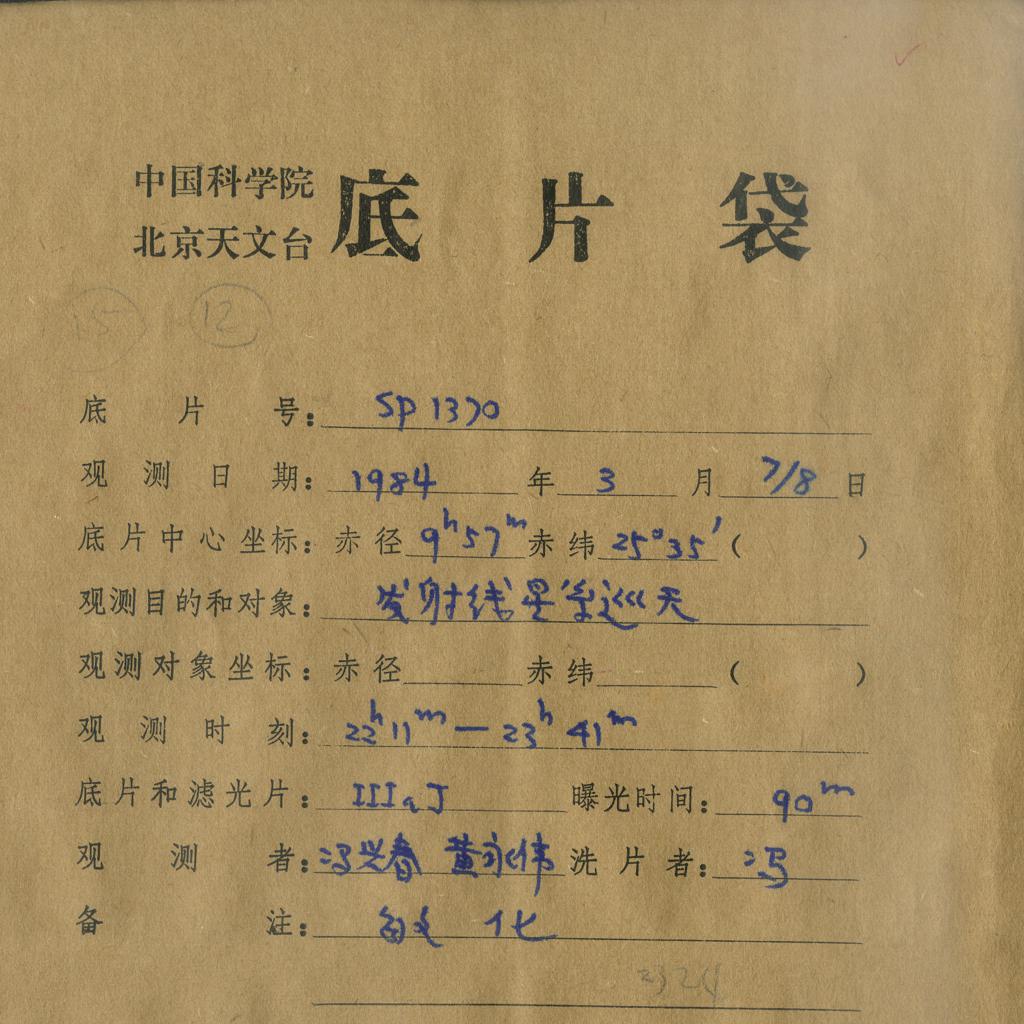 中国科学院
北京天文台
底片袋
15 12
底片号： SP 1370
观测日期： 1984 年 3 月 7/8 日
底片中心坐标： 赤径 9h57m 赤纬 25°35′ ( )
观测目的和对象： 发射线星系巡天
观测对象坐标： 赤径 赤纬 ( )
观测时刻： 22h11m — 23h41m
底片和滤光片： IIIaJ 曝光时间： 90m
观测者： 冯兴春 黄永伟 洗片者： 冯
备注： 敏化
2324